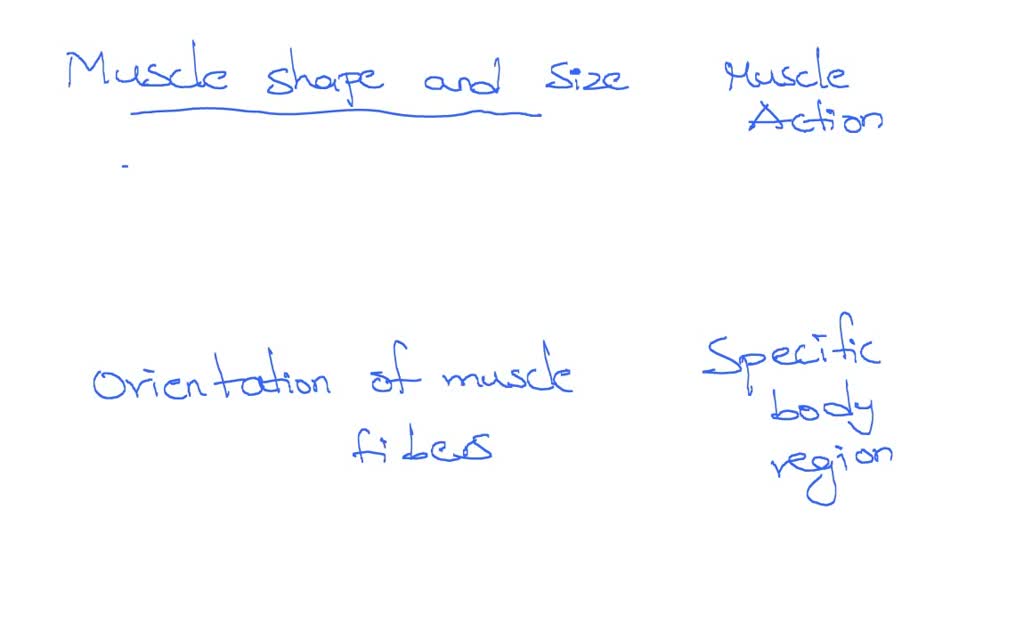 Muscle shape and size
Muscle
Action
Orientation of muscle
fibers
Specific
body
region